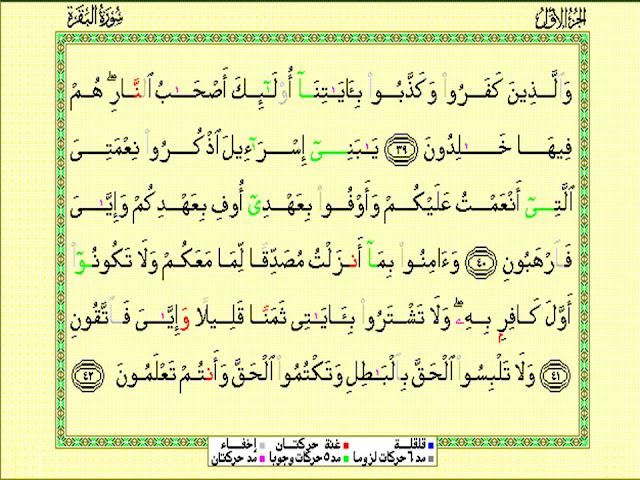 الجزء الأول
سورة البقرة
وَٱلَّذِينَ كَفَرُوا۟ وَكَذَّبُوا۟ بِـَٔايَـٰتِنَآ أُو۟لَـٰٓئِكَ أَصْحَـٰبُ ٱلنَّارِ ۖ هُمْ
فِيهَا خَـٰلِدُونَ ٣٩ يَـٰبَنِىٓ إِسْرَٰٓءِيلَ ٱذْكُرُوا۟ نِعْمَتِىَ
ٱلَّتِىٓ أَنْعَمْتُ عَلَيْكُمْ وَأَوْفُوا۟ بِعَهْدِىٓ أُوفِ بِعَهْدِكُمْ وَإِيَّـٰىَ
فَٱرْهَبُونِ ٤٠ وَءَامِنُوا۟ بِمَآ أَنزَلْتُ مُصَدِّقًا لِّمَا مَعَكُمْ وَلَا تَكُونُوٓا۟
أَوَّلَ كَافِرٍۭ بِهِۦ ۖ وَلَا تَشْتَرُوا۟ بِـَٔايَـٰتِى ثَمَنًا قَلِيلًا وَإِيَّـٰىَ فَٱتَّقُونِ
٤١ وَلَا تَلْبِسُوا۟ ٱلْحَقَّ بِٱلْبَـٰطِلِ وَتَكْتُمُوا۟ ٱلْحَقَّ وَأَنتُمْ تَعْلَمُونَ ٤٢
قلقلة غنة حركتان إخفاء
مد ٦ حركات لزوما مد ٥ حركات وجوبا مد حركتان